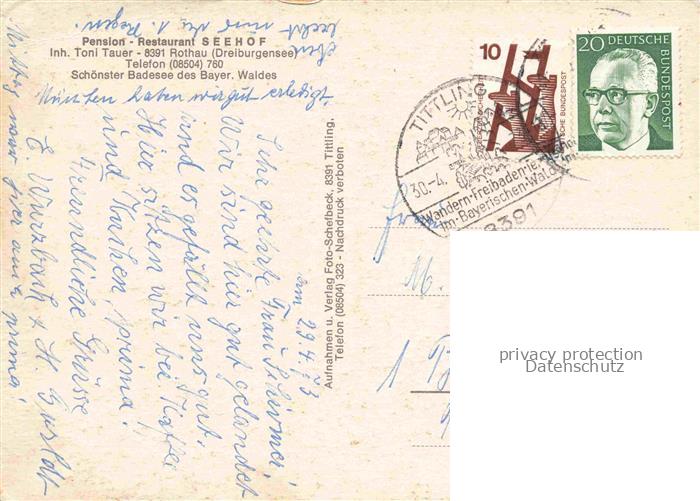 Pension - Restaurant SEEHOF
Inh. Toni Tauer - 8391 Rothau (Dreiburgensee)
Telefon (08504) 760
Schönster Badesee des Bayer. Waldes
am 29.4.73
Sehr geehrte Frau
Wir sind hier gut gelandet
und es gefällt uns gut.
Hier sitzen wir bei Kaffee
und Kuchen, prima!
Freundliche Grüsse
E Wurzbach + H.
Mittag war hier auch prima!
München haben wir gut erledigt
eben
Regen.
Aufnahmen u. Verlag Foto-Schefbeck, 8391 Tittling,
Telefon (08504) 323 - Nachdruck verboten
10
DEUTSCHE BUNDESPOST
20 DEUTSCHE
BUNDESPOST
TITTLING
30.-4.
Wandern-Freibaden-
im-Bayerischen-Wald
8391
M.
1
privacy protection
Datenschutz